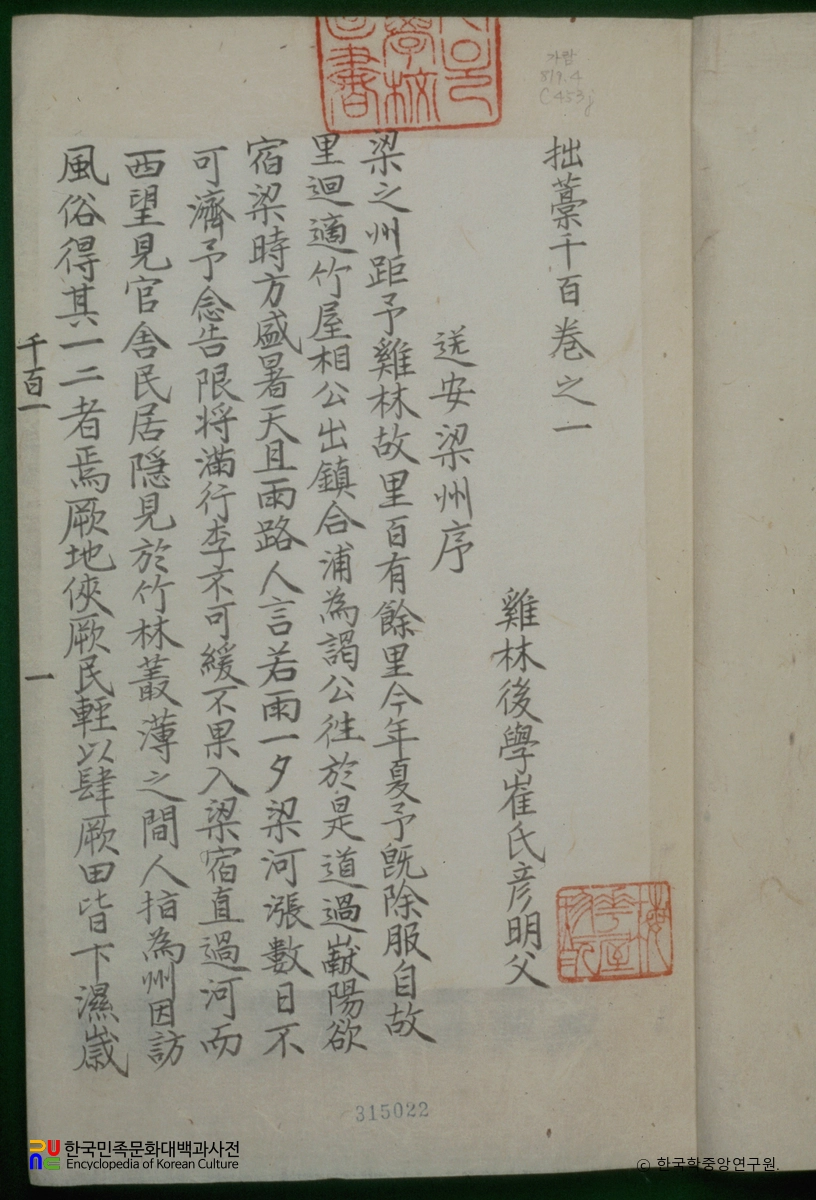 拙藁千百卷之一
雞林後學崔氏彦明父
送安梁州序
梁之州距予雞林故里百有餘里今年夏予旣除服自故
里迴適竹屋相公出鎮合浦為謁公徃於是道過巘陽欲
宿梁時方盛暑天且雨路人言若雨一夕梁河漲數日不
可濟予念告限將滿行李不可緩不果入梁宿直過河而
西望見官舍民居隠見於竹林叢薄之間人指為州因訪
風俗得其一二者焉厥地俠厥民輕以肆厥田皆下濕歲
千百一
一
가람
819.4
C453j
315022
한국민족문화대백과사전
Encyclopedia of Korean Culture
© 한국학중앙연구원.